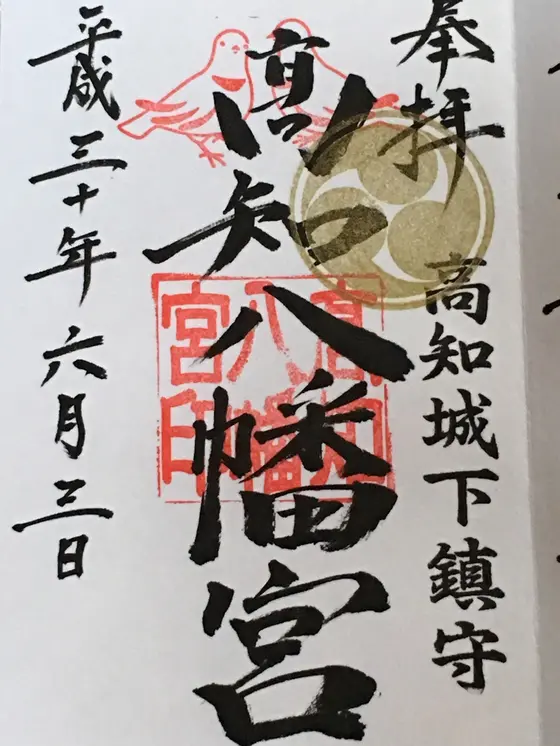 奉拝
高知城下鎮守
高知八幡宮
高知八幡宮印
平成三十年六月三日